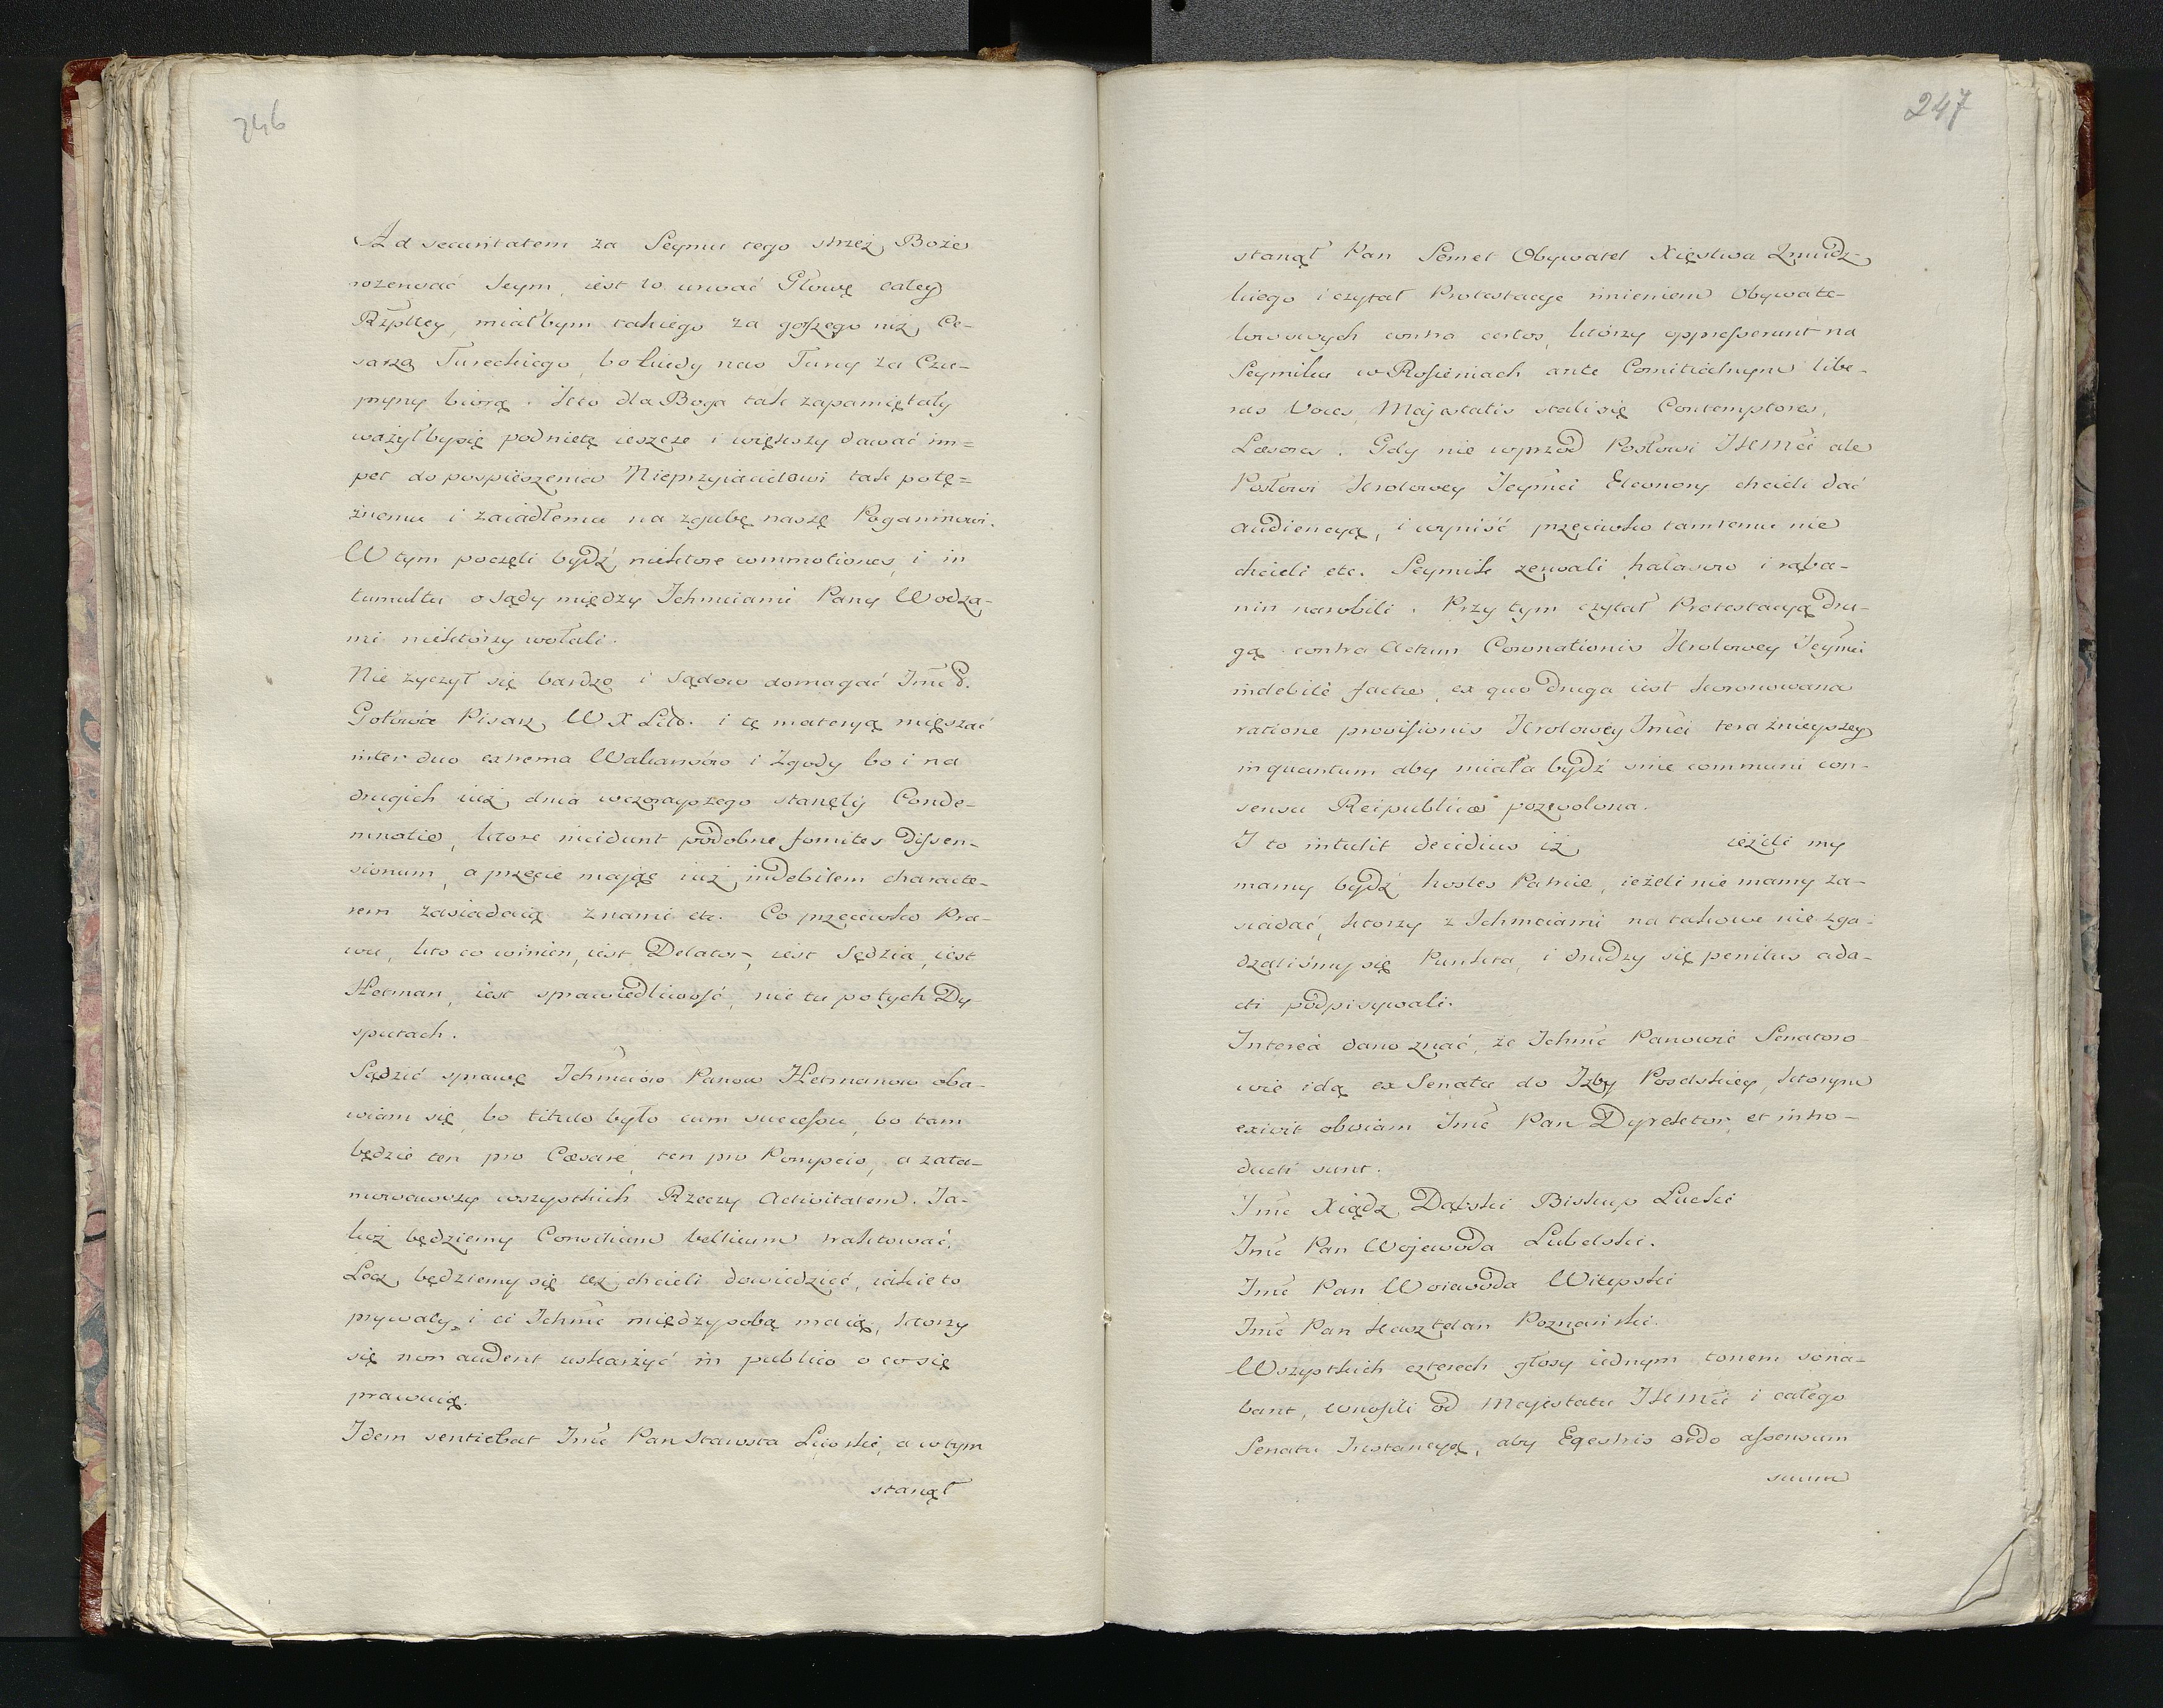 246
Ad securitatem za Seymu tego strzeż Boże
rozerwać Seym, iest to urwać Głowę całey
Rzpltey, miałbym takiego za gorszego niż Ce-
sarza Tureckiego, bo kiedy nas Turcy za Czu-
pryny biorą. Kto dla Boga tak zapamiętały
ważyłbysię podnietę ieszcze i większy dawać im=
pet do pospieszenia Nieprzyiacielowi tak potę=
żnemu i zaiadłemu na zgubę naszę Poganinowi.
W tym poczęli bydź niektore commotiones, i in
tumultu o sądy między Ichmciami Pany Wodza-
mi niektórzy wołali.
Nie życzył się bardzo i sądow domagać Imć P.
Gotówce Pisarz W X Litt. i tę materyą mięszać
inter duo extrema Wakansów i Zgody bo i na
drugich iuż dnia wczorayszego stanęły Conde-
mnatie, ktore incidunt podobne fomites Dissen-
sionum, a przecie mając iuż indebilem characte-
rem zasiadaią z nami etc. Co przeciwko Pra-
wu, kto co winien, iest Delator, iest Sędzia, iest
Hetman, iest sprawiedliwość, nie tu po tych Dy-
sputach.
Sądzić sprawę Ichmciow Panow Hetmanow oba-
wiam się, bo titulo było cum successu, bo tam
będzie ten pro Cæsare, ten pro Pompeio, a zata-
mowawszy wszystkich Rzeczy Activitatem. Ja-
koż będziemy Consilium bellicum traktować.
Lecz będziemy się też chcieli dowiedzieć, iakie to
prywaty i ci Ichmć między sobą maią, ktorzy
się non audent uskarżyć in publico o co się
prawuią.
Idem sentiebat Imć Pan Starosta Łucki, a w tym
stanął
247
stanął Pan Semet Obywatel Xięstwa Żmudz-
kiego i czytał Protestacye imieniem Obywate-
low swych contra certos, którzy oppresserunt na
Seymiku w Rosieniach ante Comitialnym libe-
ras Voces, Majestatis stali się Contemptores,
Læsores. Gdy nie wprzod Posłowi JKMći ale
Posłowi Krolowey Jeymći Eleonory chcieli dać
audiencyą, i wyniść przeciwko tamtemu nie
chcieli etc. Seymik zerwali, hałasow i rąba-
nin narobili. Przy tym czytał Protestacyą dru-
gą contra Actum Coronationis Krolowey Jeymći
indebitè factæ, ex quo druga iest koronowana
ratione provisionis Krolowey Jmći teraźnieyszey
inquantum aby miała bydź sine communi con-
sensu Reipublicæ pozwolona.
I to intulit decidius iż ieżeli my
mamy bydź hostes Patriæ, ieżeli nie mamy za-
siadać, ktorzy z Ichmciami na takowe nie zga-
dzaliśmy się Punkta, i drudzy się penitus ada-
cti podpisywali.
Intereà dano znać, że Ichmć Panowie Senatoro-
wie idą ex Senatu do Izby Poselskiey, ktorym
exivit obviam Imć Pan Dyrektor, et intro-
ducti sunt.
Imć Xiądz Dąbski Biskup Łucki
Imć Pan Wojewoda Lubelski.
Imć Pan Woiewoda Witepski
Imć Pan Kasztelan Poznański.
Wszystkich czterech głosy iednym tonem sona-
bant, wnosili od Majestatu JKMći i całego
Senatu Instancyą, aby Eqestris ordo assensum
suum